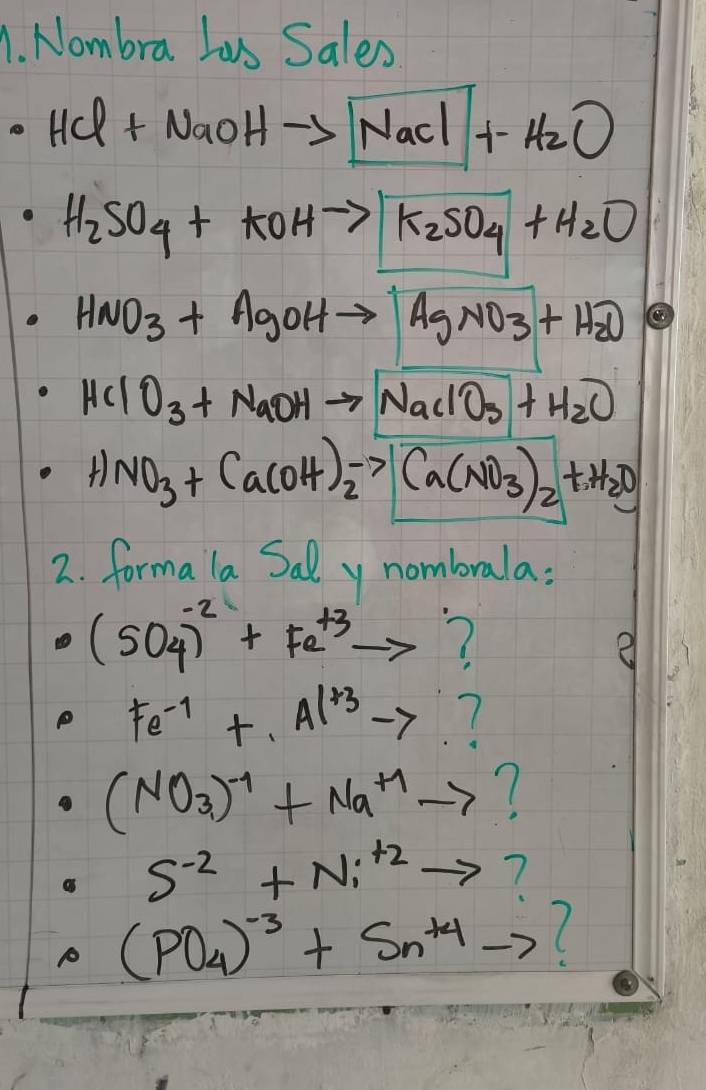 1. Nombra las Sales
• HCl + NaOH → NaCl + H₂O
• H₂SO₄ + KOH → K₂SO₄ + H₂O
• HNO₃ + AgOH → AgNO₃ + H₂O
• HClO₃ + NaOH → NaClO₃ + H₂O
• HNO₃ + Ca(OH)₂ → Ca(NO₃)₂ + H₂O
2. forma la Sal y nombrala:
• (SO₄)⁻² + Fe⁺³ → ?
• Fe⁻¹ + Al⁺³ → ?
• (NO₃)⁻¹ + Na⁺¹ → ?
• S⁻² + Ni⁺² → ?
• (PO₄)⁻³ + Sn⁺⁴ → ?